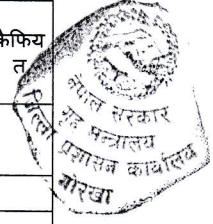 कैफियत
नेपाल सरकार
गृह मन्त्रालय
जिल्ला प्रशासन कार्यालय
गोरखा